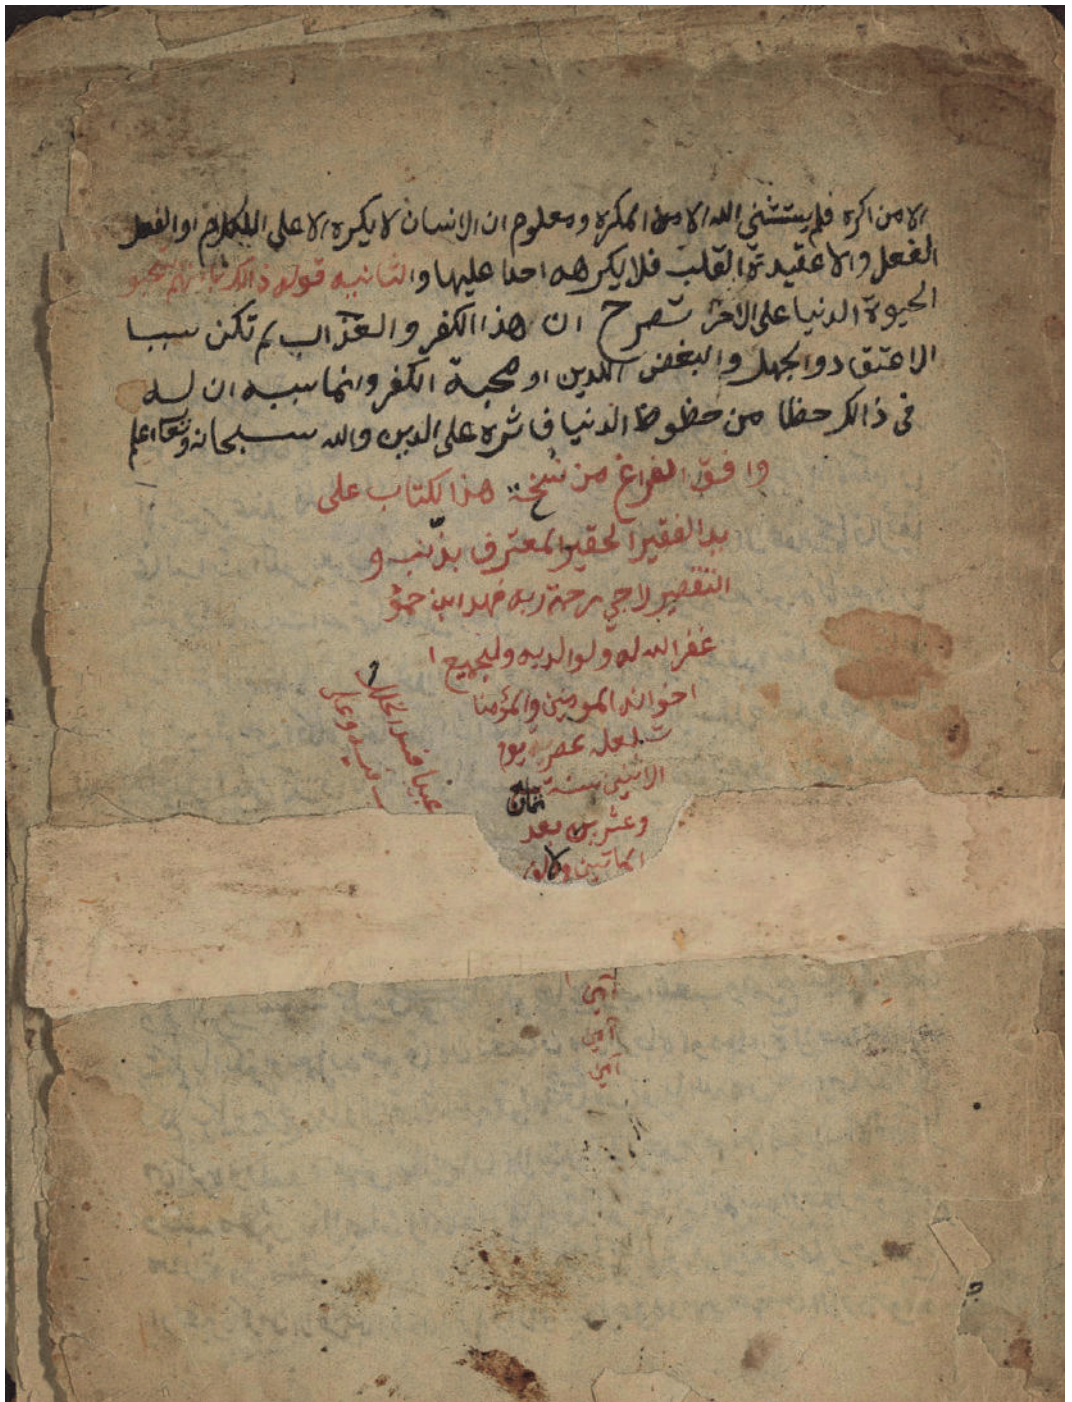 الا من اكره فلم يستثني الله الا من المكره ومعلوم ان الانسان لا يكره الا على الكلام او الفعل
الفعل والا عقيدة القلب فلا يكرهه احدا عليها والثانيه قوله ذالك بانهم استحبو
الحيوة الدنيا على الاخرة تصرح ان هذا الكفر والعذاب لم تكن سببا
الاعتقاد والجهل والبغض للدين او محبة الكفر وانما سببه ان له
في ذالك حظا من حظوظ الدنيا فاثره على الدين والله سبحانه وتعا اعلم
وافق الفراغ من نسخة هذا لكتاب على
يد الفقير الحقير المعترف بذنب و
التقصير لاجي رحمة ربه فهد ابن
غفر الله له ولوالديه ولجميع ا
اخوانه المومنين والمؤمنا
ت لعله عصر يوم
الاثنين سنة
ثمان
وعشرين بعد
الماتين والالف
امين
امين
امين